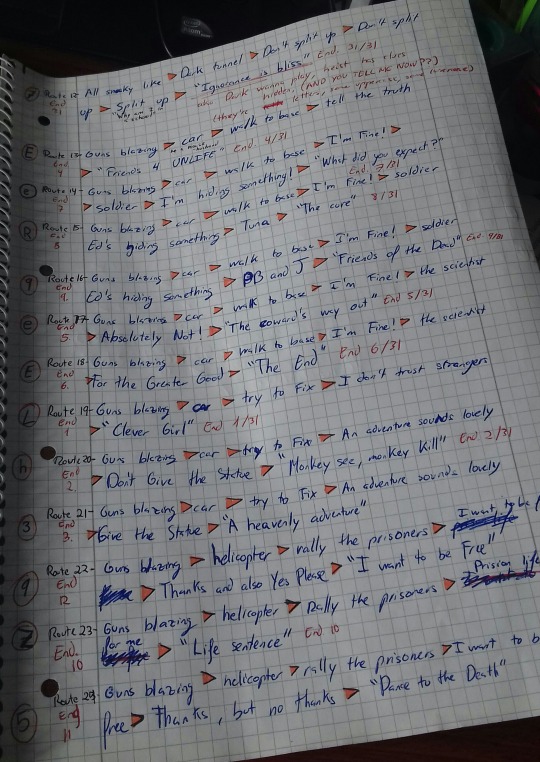 Route 12- All sneaky like ▶ Dark tunnel ▶ Don't split up ▶ Don't split
End 31 up ▶ "Split up ▶ "Ignorance is bliss" End 31/31
E Route 13- Guns blazing ▶ car ▶ walk to base ▶ tell the truth
End 4 ▶ "Friends 4 UNLIFE" End 4/31
e Route 14- Guns blazing ▶ car ▶ walk to base ▶ I'm Fine! ▶
End 7 ▶ soldier ▶ I'm hiding something! ▶ "What did you expect?" End 7/31
R Route 15- Guns blazing ▶ car ▶ walk to base ▶ I'm Fine! ▶ soldier
End 8 Ed's hiding something ▶ Tuna ▶ "The cure" 8/31
9 Route 16- Guns blazing ▶ car ▶ walk to base ▶ I'm Fine! ▶ soldier
End 9. Ed's hiding something ▶ PB and J ▶ "Friends of the Dead" End 9/31
e Route 17- Guns blazing ▶ car ▶ walk to base ▶ I'm Fine! ▶ the scientist
End 5 ▶ Absolutely Not! ▶ "The coward's way out" End 5/31
E Route 18- Guns blazing ▶ car ▶ walk to base ▶ I'm Fine! ▶ the scientist
End 6. ▶ For the Greater Good ▶ "The End" End 6/31
L Route 19- Guns blazing ▶ car ▶ try to Fix ▶ I don't trust strangers
End 1 ▶ "Clever Girl" End 1/31
h Route 20- Guns blazing ▶ car ▶ try to Fix ▶ An adventure sounds lovely
End 2. ▶ Don't Give the Statue ▶ "Monkey see, monkey Kill" End 2/31
3 Route 21- Guns blazing ▶ car ▶ try to Fix ▶ An adventure sounds lovely
End 3. ▶ Give the Statue ▶ "A heavenly adventure"
9 Route 22- Guns blazing ▶ helicopter ▶ rally the prisoners ▶ I want to be
End 12 ▶ Thanks and also Yes Please ▶ "I want to be Free"
2 Route 23- Guns blazing ▶ helicopter ▶ Rally the prisoners ▶ Prison life
End. 10 for me ▶ "Life sentence" End 10
5 Route 24- Guns blazing ▶ helicopter ▶ rally the prisoners ▶ I want to b
End 11 free ▶ Thanks, but no thanks ▶ "Dance to the Death"